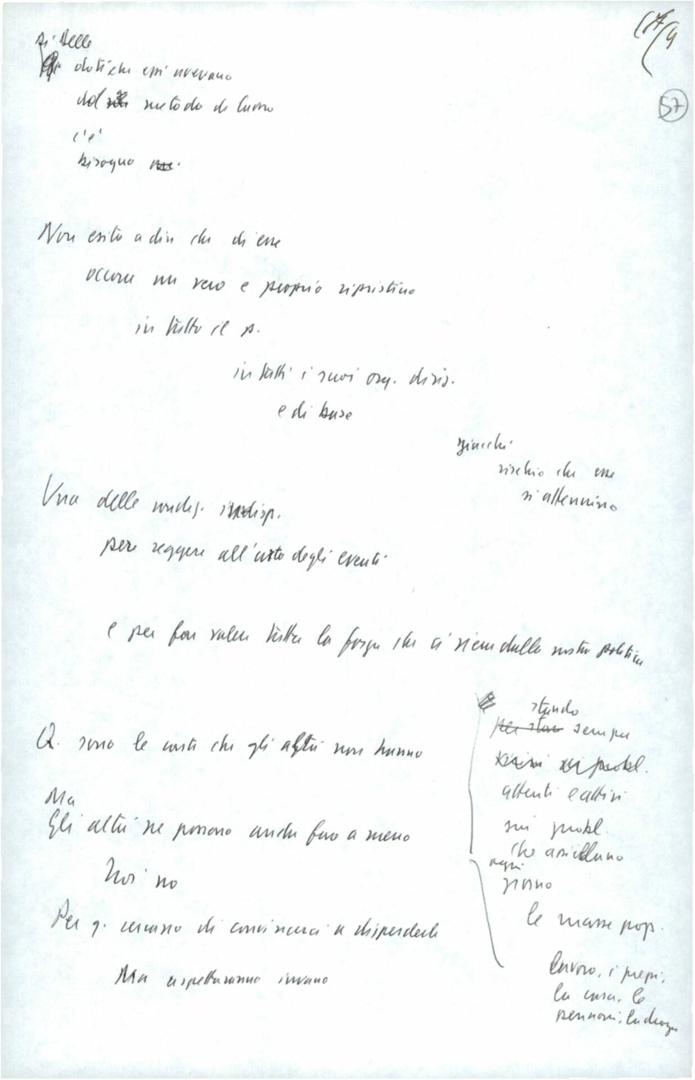 17/4
57
di delle
doti che essi avevano
dal metodo di lavoro
c'è
bisogno
Non esito a dire che di esse
occorre un vero e proprio ripristino
in tutto il p.
in tutti i suoi org. dirig.
e di base
giacché
rischio che esse
si attenuino
Una delle condiz. indisp.
per reggere all'urto degli eventi
e per far valere tutta la forza che ci viene dalla nostra politica
Q. sono le carte che gli altri non hanno
Ma
Gli altri ne possono anche fare a meno
Noi no
Per q. cercano di convincerci a disperderle
Ma aspetteranno invano
stando
per stare sempre
attenti e attivi
sui probl.
che assillano
ogni
giorno
le masse pop.
lavoro, i prezzi,
la casa, le
pensioni, la droga